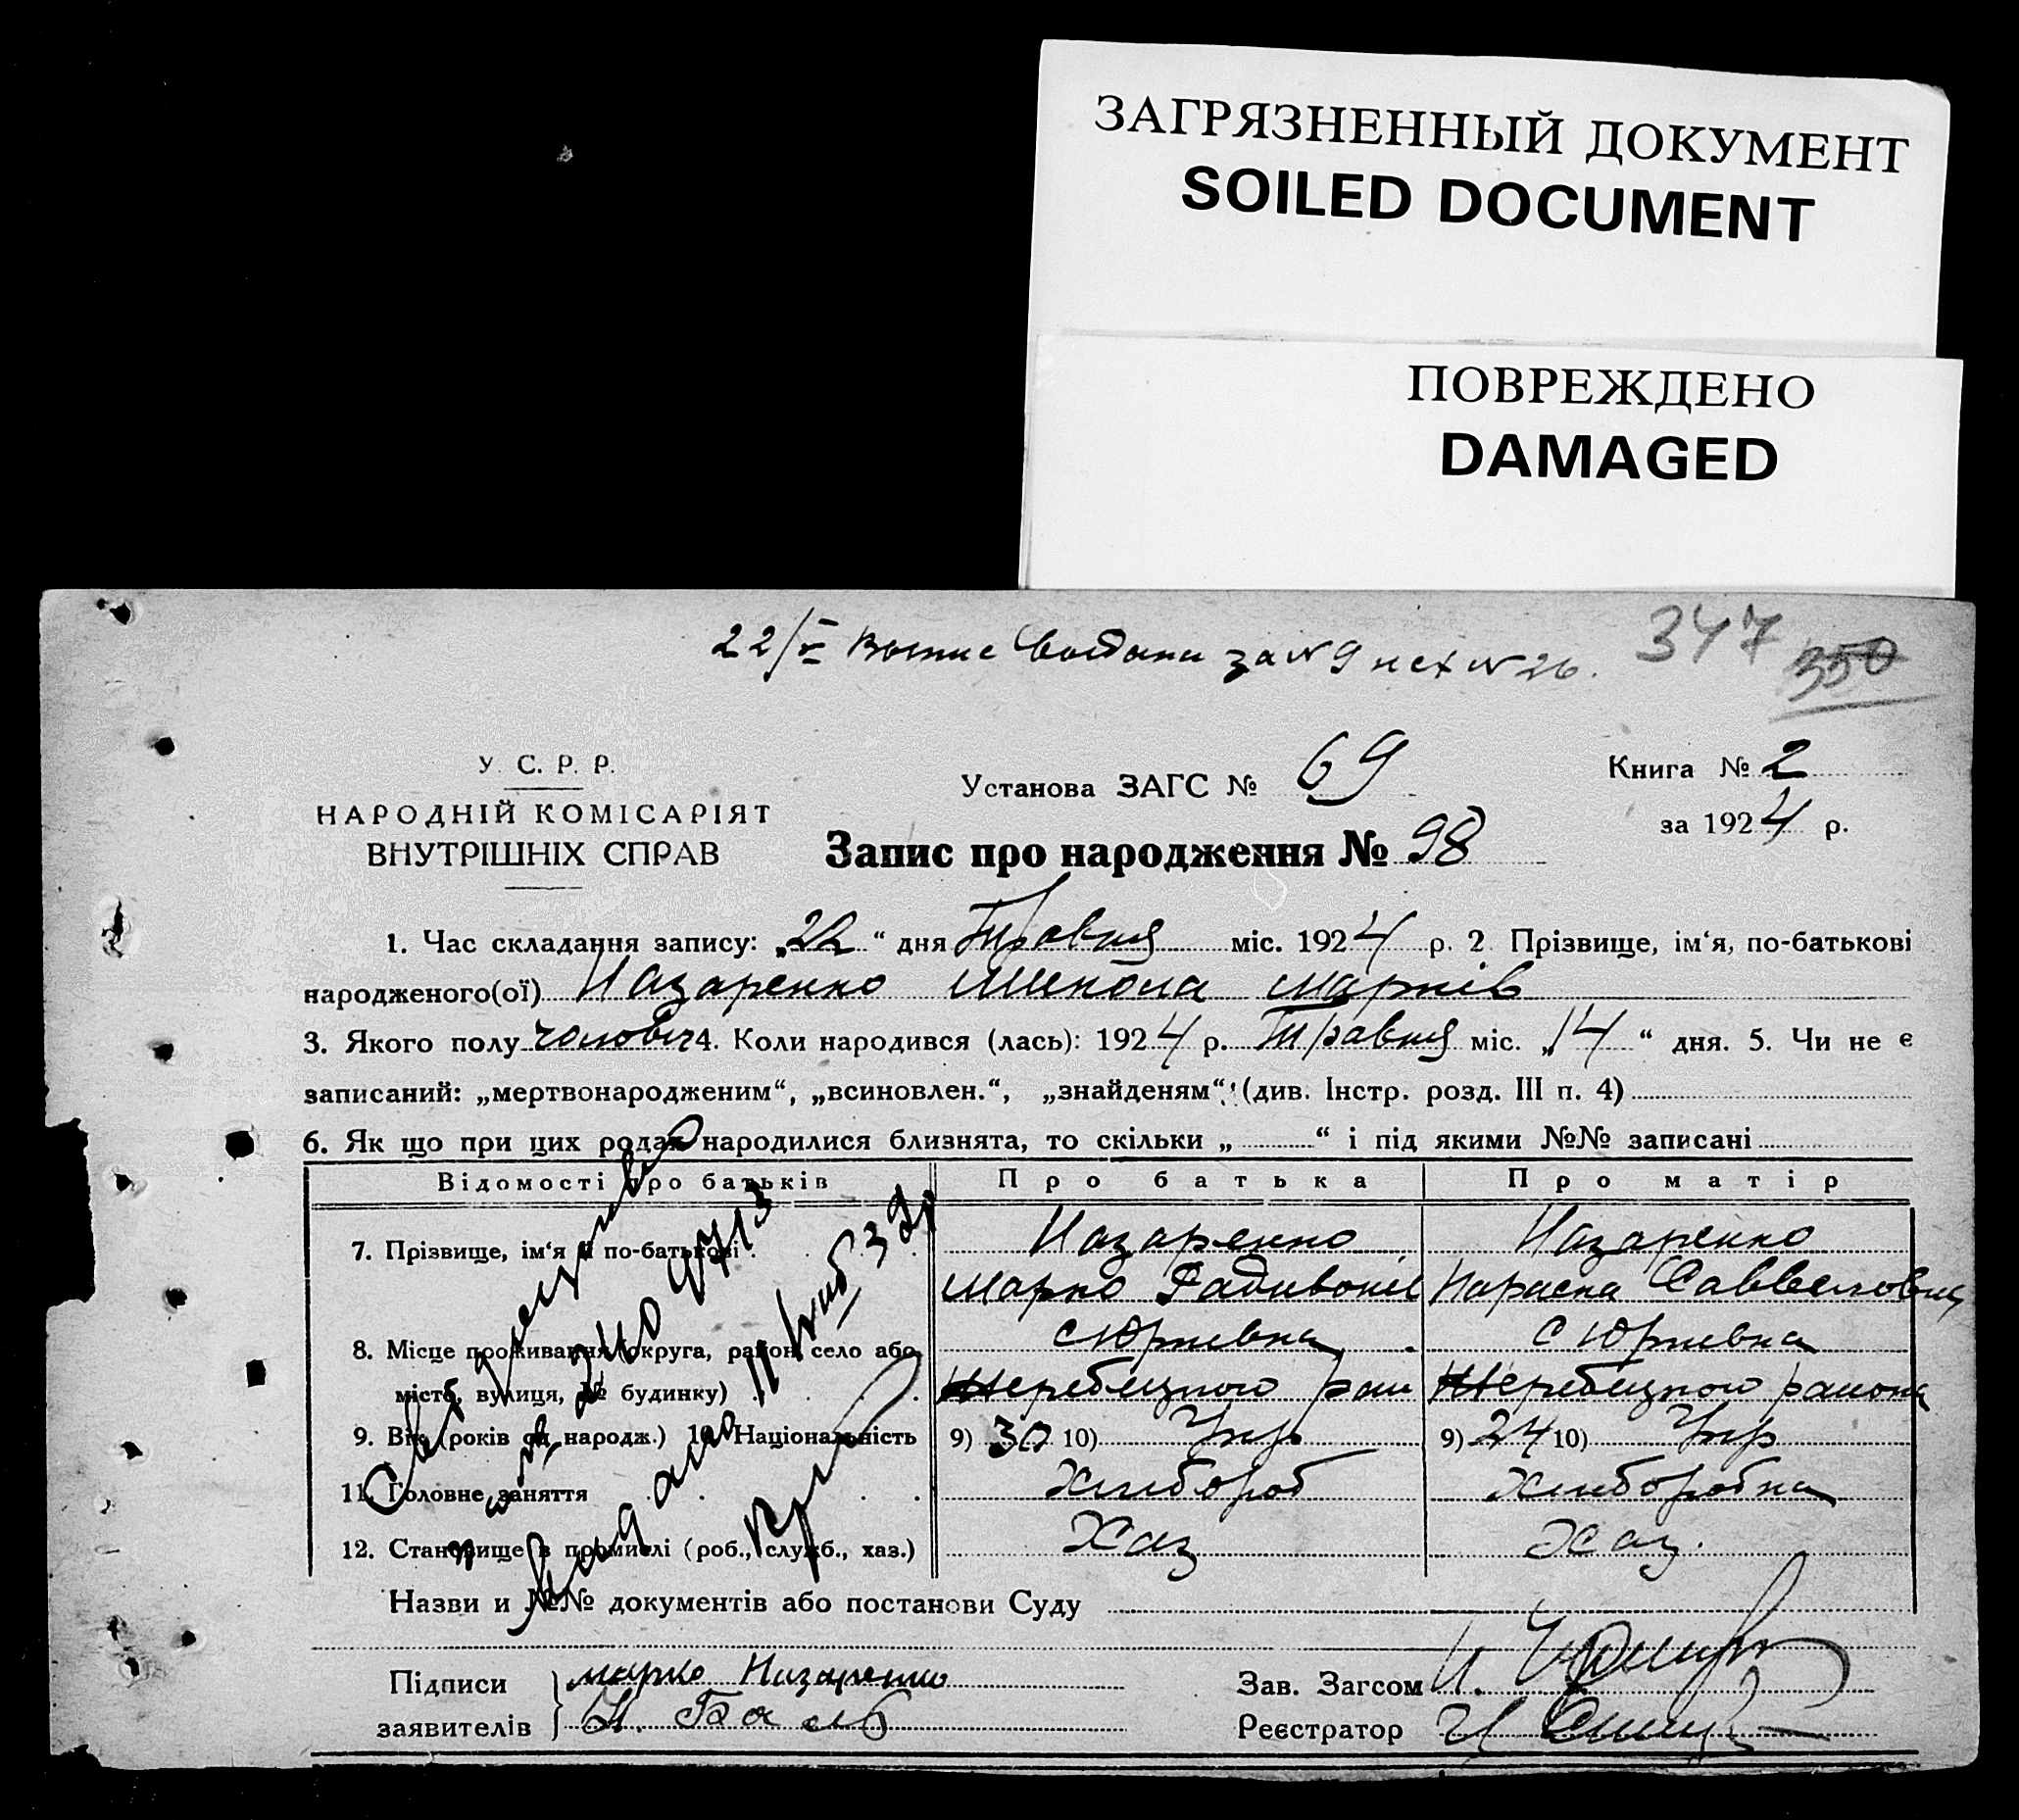 ЗАГРЯЗНЕННЫЙ ДОКУМЕНТ
SOILED DOCUMENT
ПОВРЕЖДЕНО
DAMAGED
347 350
22/V за № 9 исх № 26.
У. С. Р. Р.
НАРОДНІЙ КОМІСАРІЯТ
ВНУТРІШНІХ СПРАВ
Установа ЗАГС № 69
Книга № 2
за 1924 р.
Запис про народження № 98
1. Час складання запису: „22“ дня Травня міс. 1924 р. 2 Прізвище, ім‘я, по-батькові
народженого(ої) Назаренко Микола Марків
3. Якого полу чоловіч 4. Коли народився (лась): 1924 р. Травня міс. „14“ дня. 5. Чи не є
записаний: „мертвонародженим“, „всиновлен.“, „знайденям“ (див. Інстр. розд. III п. 4)
6. Як що при цих родах народилися близнята, то скільки „ “ і під якими №№ записані
Відомості про батьків Про батька Про матір
7. Прізвище, ім‘я й по-батькові Назаренко Назаренко
Марко Параска
8. Місце проживання (округа, район, село або с Юрківка с Юрківка
місто, вулиця, № будинку) Жеребецкого рай Жеребецкого района
9. Вік (років од народж.) 10. Національність 9) 30 10) Укр 9) 24 10) Укр
11. Головне заняття Хлибороб Хлиборобка
12. Становище в промислі (роб., служб., хаз.) Хаз Хаз.
Назви и №№ документів або постанови Суду
Підписи Марко Назаренко Зав. Загсом
заявителів Реєстратор